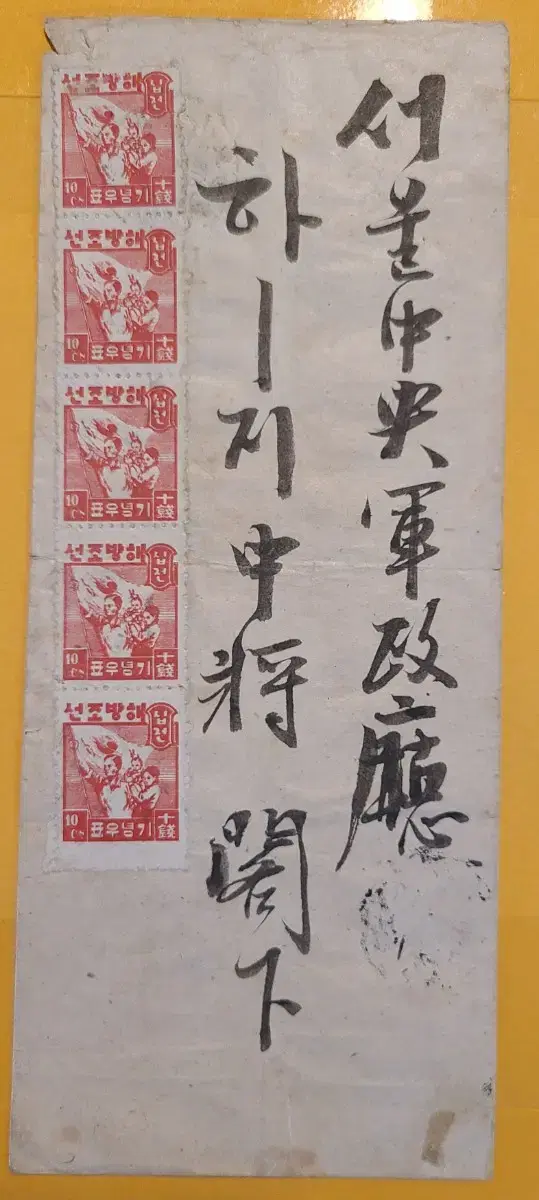 서울中央軍政廳
하ー지中將 閣下
해방조선
십전
十錢
기념우표
10 Cn
해방조선
십전
十錢
기념우표
10 Cn
해방조선
십전
十錢
기념우표
10 Cn
해방조선
십전
十錢
기념우표
10 Cn
해방조선
십전
十錢
기념우표
10 Cn